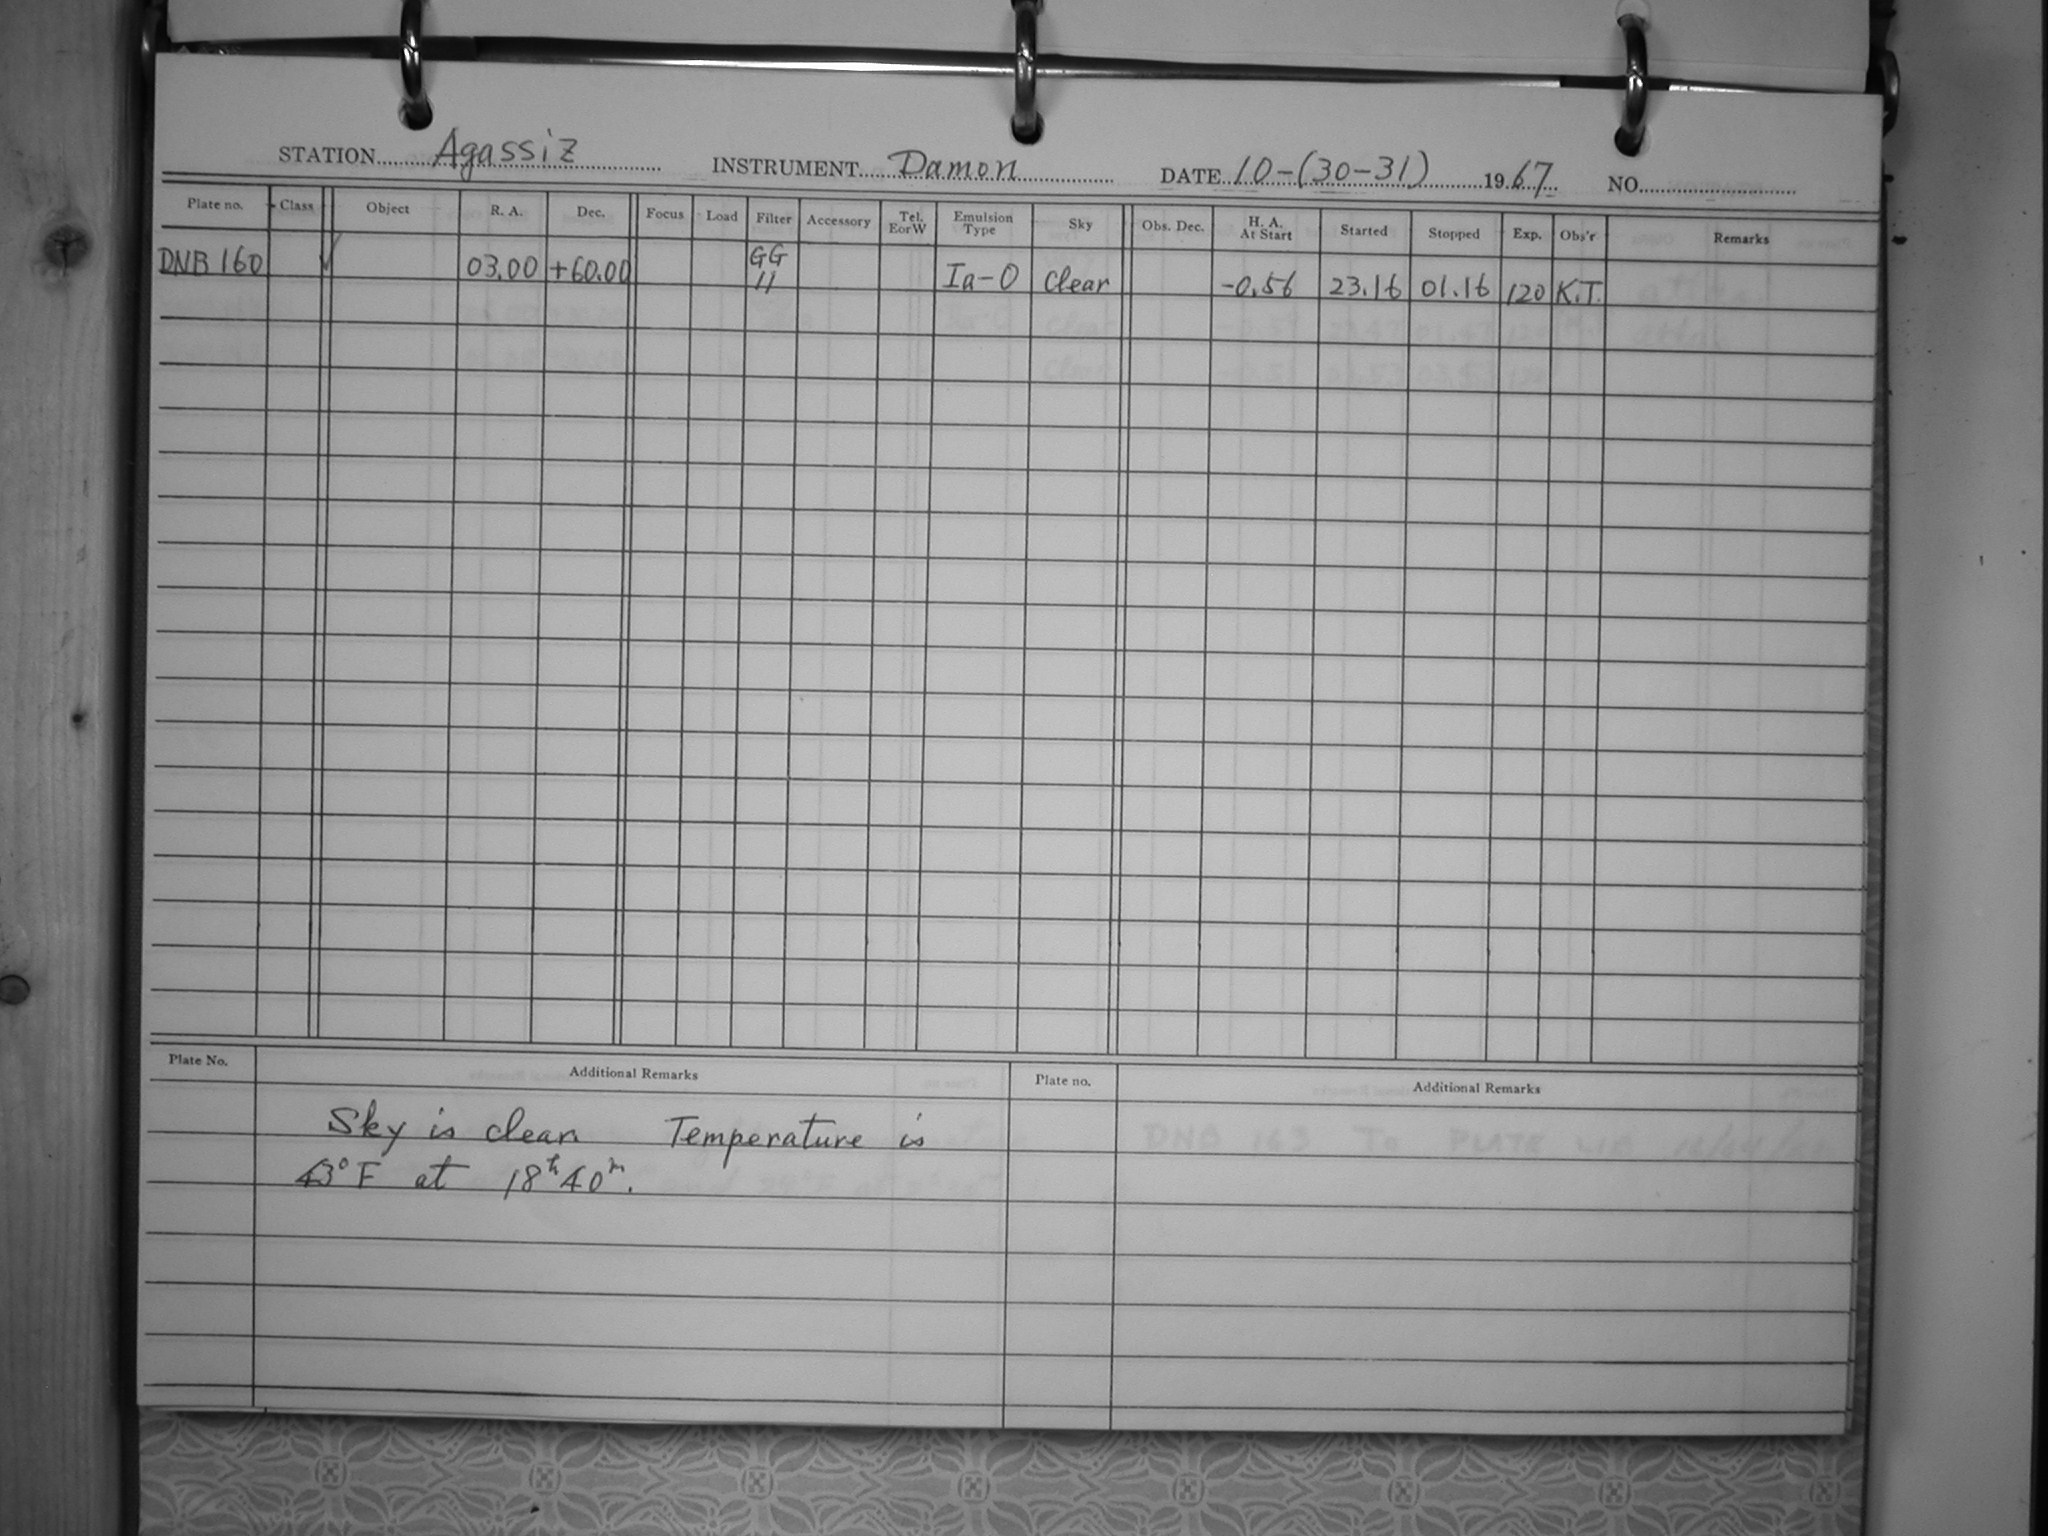 STATION Agassiz INSTRUMENT Damon DATE 10-(30-31) 1967 NO.
Plate no. Class Object R. A. Dec. Focus Load Filter Accessory Tel. EorW Emulsion Type Sky Obs. Dec. H. A. At Start Started Stopped Exp. Obs'r Remarks
DNB 160 ✓ 03.00 +60.00 GG 11 Ia-O Clear -0.56 23.16 01.16 120 K.T.
Plate No. Additional Remarks Plate no. Additional Remarks
Sky is clear. Temperature is
43°F at 18h40m.